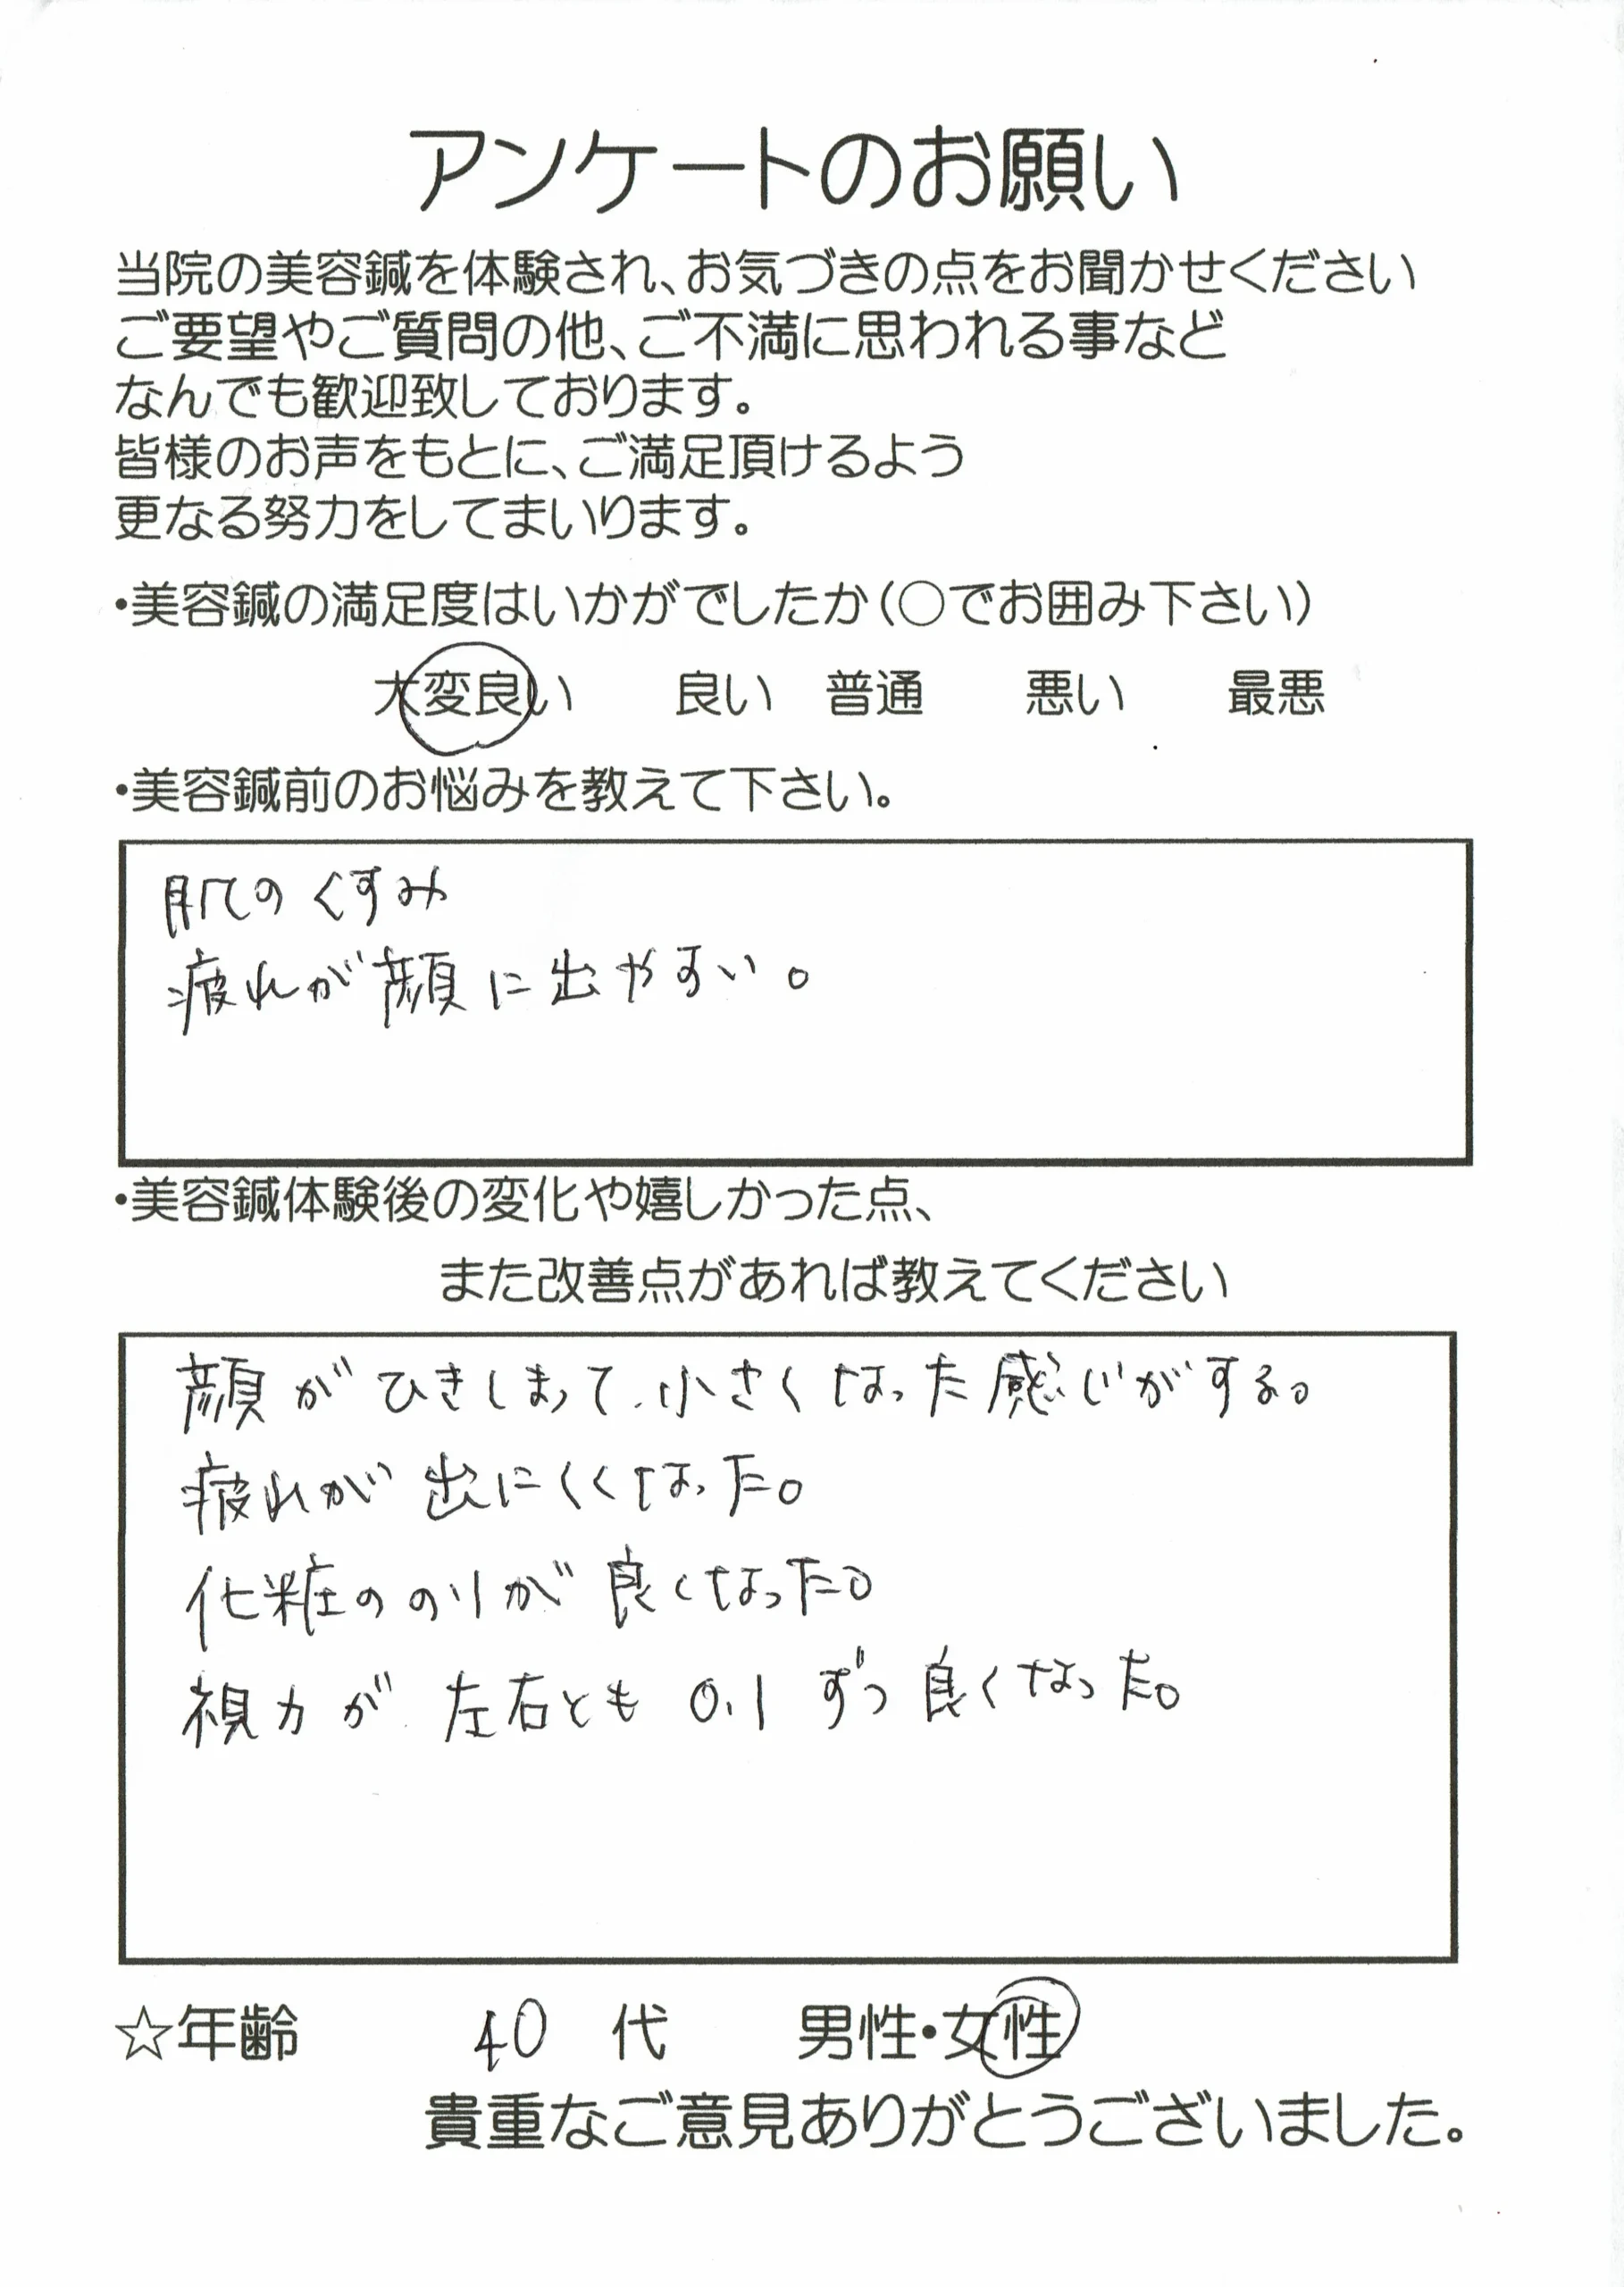 アンケートのお願い
当院の美容鍼を体験され、お気づきの点をお聞かせください
ご要望やご質問の他、ご不満に思われる事など
なんでも歓迎致しております。
皆様のお声をもとに、ご満足頂けるよう
更なる努力をしてまいります。
・美容鍼の満足度はいかがでしたか(○でお囲み下さい)
大変良い 良い 普通 悪い 最悪
・美容鍼前のお悩みを教えて下さい。
肌のくすみ
疲れが顔に出やすい。
・美容鍼体験後の変化や嬉しかった点、
また改善点があれば教えてください
顔がひきしまって、小さくなった感じがする。
疲れが出にくくなった。
化粧ののりが良くなった。
視力が左右とも0.1ずつ良くなった。
☆年齢 40 代 男性・女性
貴重なご意見ありがとうございました。